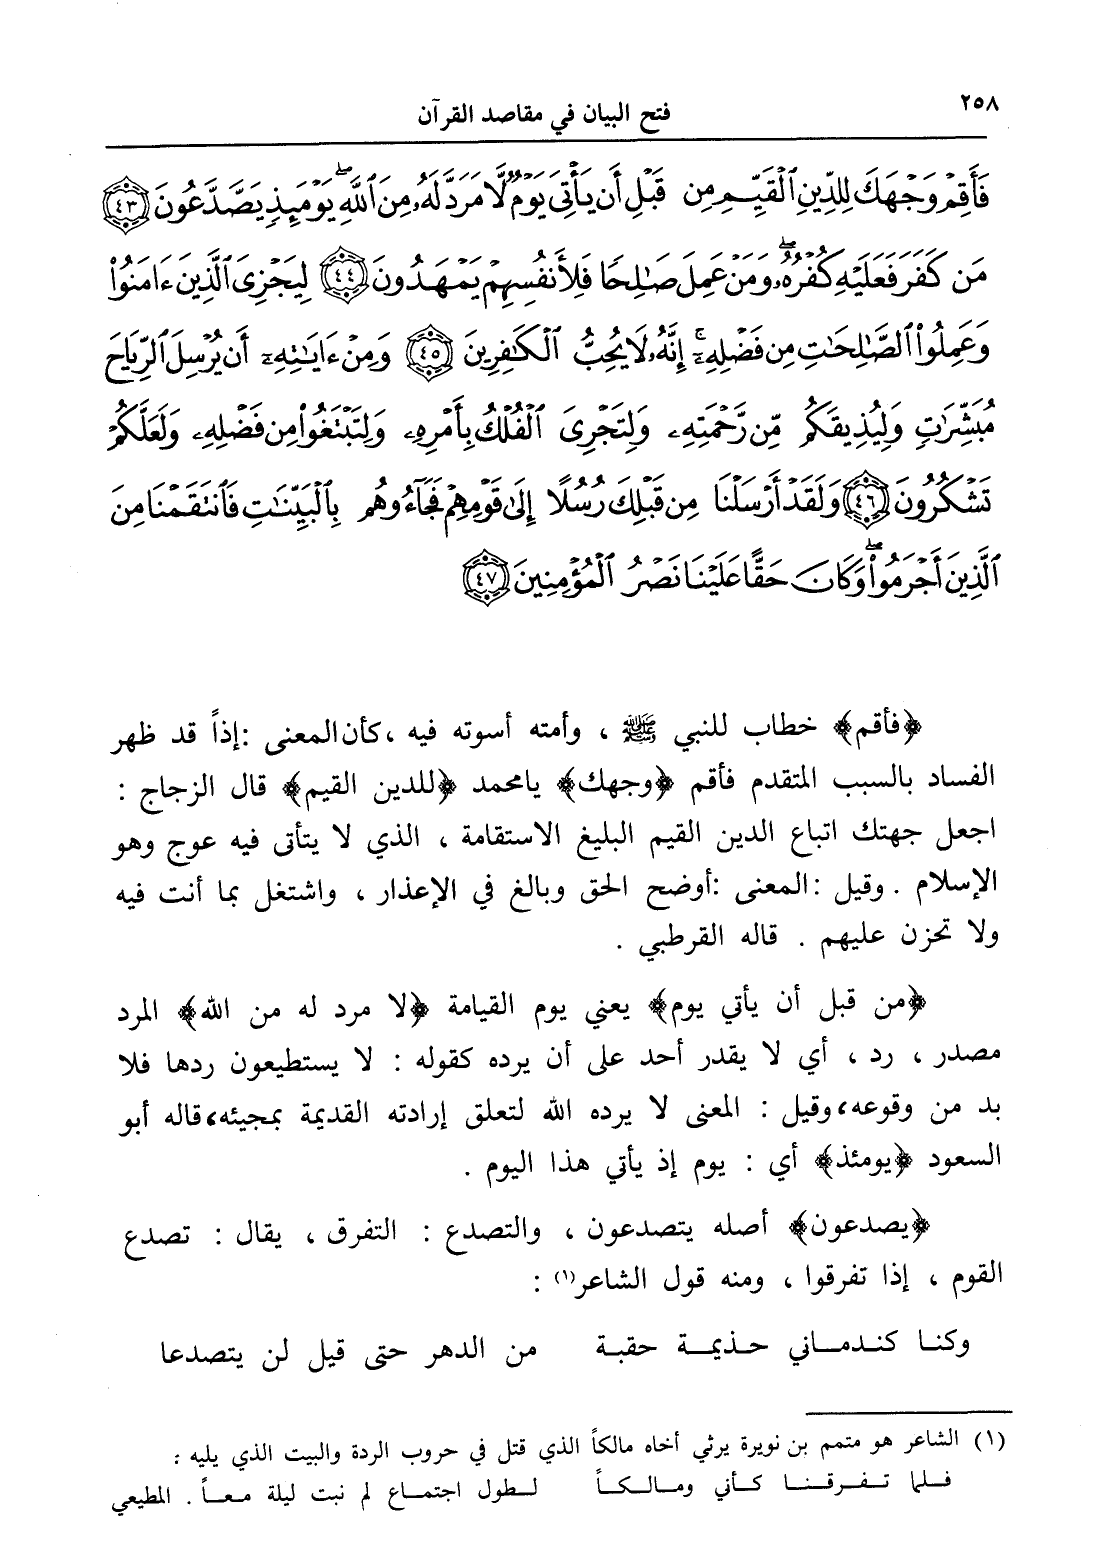 ٢٥٨
فتح البيان في مقاصد القرآن
فَأَقِمْ وَجْهَكَ لِلدِّينِ ٱلْقَيِّمِ مِن قَبْلِ أَن يَأْتِىَ يَوْمٌ لَّا مَرَدَّ لَهُۥ مِنَ ٱللَّهِ ۖ يَوْمَئِذٍ يَصَّدَّعُونَ ٤٣
مَن كَفَرَ فَعَلَيْهِ كُفْرُهُۥ ۖ وَمَنْ عَمِلَ صَـٰلِحًا فَلِأَنفُسِهِمْ يَمْهَدُونَ ٤٤ لِيَجْزِىَ ٱلَّذِينَ ءَامَنُوا۟
وَعَمِلُوا۟ ٱلصَّـٰلِحَـٰتِ مِن فَضْلِهِۦٓ ۚ إِنَّهُۥ لَا يُحِبُّ ٱلْكَـٰفِرِينَ ٤٥ وَمِنْ ءَايَـٰتِهِۦٓ أَن يُرْسِلَ ٱلرِّيَاحَ
مُبَشِّرَٰتٍ وَلِيُذِيقَكُم مِّن رَّحْمَتِهِۦ وَلِتَجْرِىَ ٱلْفُلْكُ بِأَمْرِهِۦ وَلِتَبْتَغُوا۟ مِن فَضْلِهِۦ وَلَعَلَّكُمْ
تَشْكُرُونَ ٤٦ وَلَقَدْ أَرْسَلْنَا مِن قَبْلِكَ رُسُلًا إِلَىٰ قَوْمِهِمْ فَجَآءُوهُم بِٱلْبَيِّنَـٰتِ فَٱنتَقَمْنَا مِنَ
ٱلَّذِينَ أَجْرَمُوا۟ ۖ وَكَانَ حَقًّا عَلَيْنَا نَصْرُ ٱلْمُؤْمِنِينَ ٤٧
﴿فأقم﴾ خطاب للنبي ﷺ ، وأمته أسوته فيه ،كأن المعنى :إذاً قد ظهر
الفساد بالسبب المتقدم فأقم ﴿وجهك﴾ يامحمد ﴿للدين القيم﴾ قال الزجاج :
اجعل جهتك اتباع الدين القيم البليغ الاستقامة ، الذي لا يتأتى فيه عوج وهو
الإسلام . وقيل :المعنى :أوضح الحق وبالغ في الإعذار ، واشتغل بما أنت فيه
ولا تحزن عليهم . قاله القرطبي .
﴿من قبل أن يأتي يوم﴾ يعني يوم القيامة ﴿لا مرد له من الله﴾ المرد
مصدر ، رد ، أي لا يقدر أحد على أن يرده كقوله : لا يستطيعون ردها فلا
بد من وقوعه، وقيل : المعنى لا يرده الله لتعلق إرادته القديمة بمجيئه، قاله أبو
السعود ﴿يومئذ﴾ أي : يوم إذ يأتي هذا اليوم .
﴿يصدعون﴾ أصله يتصدعون ، والتصدع : التفرق ، يقال : تصدع
القوم ، إذا تفرقوا ، ومنه قول الشاعر(١) :
وكنـا كنـدمـاني حـذيمـة حقبة من الدهر حتى قيل لن يتصدعا
(١) الشاعر هو متمم بن نويرة يرثي أخاه مالكاً الذي قتل في حروب الردة والبيت الذي يليه :
فـلما تـفـرقـنـا كـأني ومـالـكـاً لـطول اجتمـاع لم نبت ليلة معـاً . المطيعي